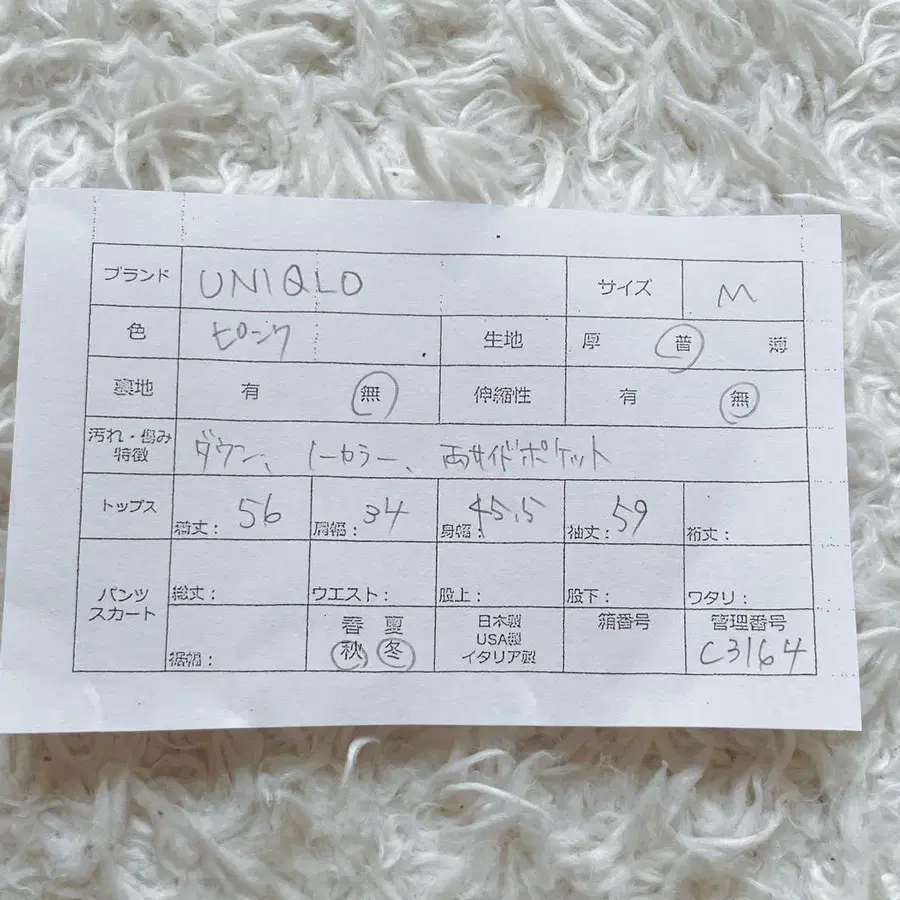 ブランド UNIQLO サイズ M
色 ピンク 生地 厚 普 薄
裏地 有 無 伸縮性 有 無
汚れ・傷み
特徴 ダウン、ノーカラー、両サイドポケット
トップス 着丈: 56 肩幅: 34 身幅: 45.5 袖丈: 59 裄丈:
パンツ
スカート 総丈: ウエスト: 股上: 股下: ワタリ:
裾幅: 春 夏 日本製 箱番号 管理番号
秋 冬 USA製 C3164
イタリア製